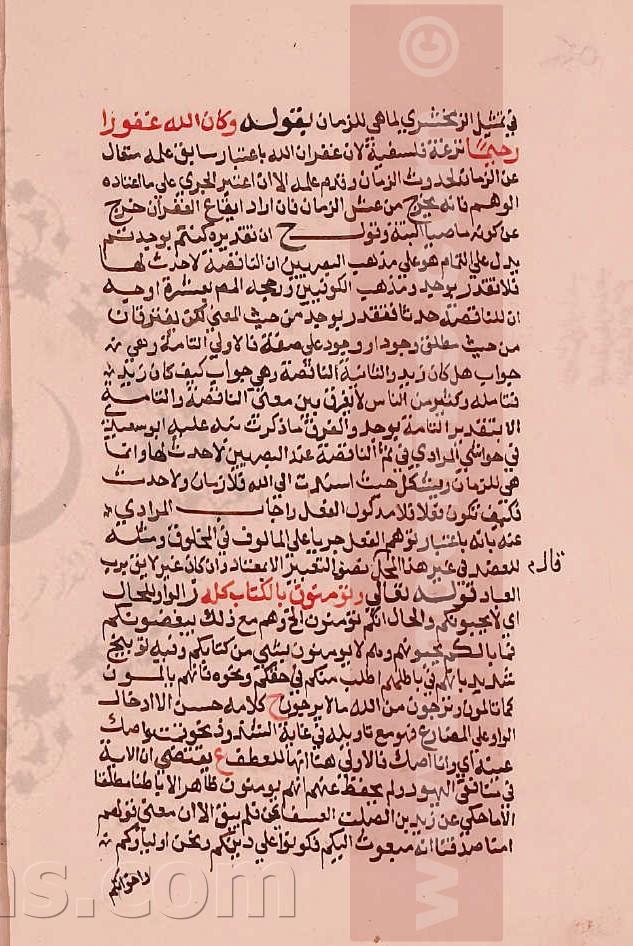 في تمثيل الزمخشري لما هي للزمان بقوله وكان الله غفورا
رحيما نزعة فلسفية لان غفران الله باعتبار سابق علمه متعال
عن الزمان لحدوث الزمان وقدم علمه الا ان اعتبر الجري علي ما اعتاده
الوهم فانه يخرج من الزمان فان اراد ايقاع الغفران خرج
عن كونه ماضيا البتة وقول ح ان تقديره كنتم بوجدتم
يدل علي التمام هو علي مذهب البصريين ان الناقصة لا حدث لها
فلا تقدر بوجد ومذهب الكوفيين ورجحه بعشرة اوجه
ان للناقصة حدثا فتقدر بوجد من حيث المعني لكن يفترقان
من حيث مطلق وجود او وجود علي صفة فالاولي التامة وهي
جواب هل كان زيد والثانية الناقصة وهي جواب كيف كان زيد
فتامله وكثير من الناس لا يفرق بين معني الناقصة والتامة
الا بتقدير التامة بوجد والفرق ما ذكرت نبه عليه ابو سعيد
في حواشي المرادي في الناقصة عند البصريين لا حدث لها وانما
هي للزمان ويشكل حيث اسندت الي الله فلا زمان ولا حدث
فكيف تكون فعلا فلا مدلول الفعل واجاب المرادي
عنه بانه باعتبار توهم العقل جريا علي المالوف في المخلوق ومثله
للعضد في غير هذا المحل
قوله تعالي وتؤمنون بالكتاب كله ز الواو للحال
اي لا يحبونكم والحال انكم تؤمنون وهم مع ذلك يبغضونكم
فما بالكم تحبونهم وهم لا يؤمنون بشي من كتابكم وفيه توبيخ
شديد بانهم في باطلهم اصلب منكم في حقكم ونحوه فانهم يالمون
كما تالمون وترجون من الله ما لا يرجون ح كلامه حسن الا ادخال
الواو علي المضارع فهو مع تاويله في غاية الشذوذ نحو قمت واصك
عينه اي وانا اصك فالاولي هنا انها للعطف ع يقتضي ان الاية
في منافقي اليهود ولم يحفظ عنهم انهم يؤمنون ظاهرا لا باطنا مطلقا
الا ما حكي عن زيد بن الصلت فلم يبق الا ان معني قولهم
امنا صدقنا انه مبعوث اليكم فكونوا علي دينكم ونحن اولياؤكم
واخوانكم
قاله